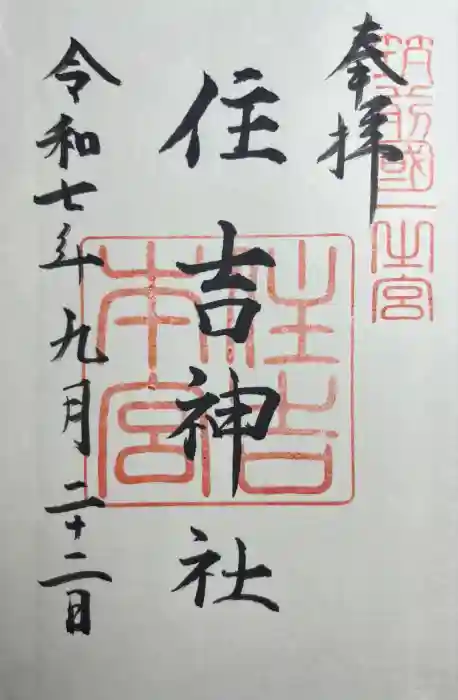 奉拝
筑前國一之宮
住吉神社
住吉
本宮
令和七年九月二十二日